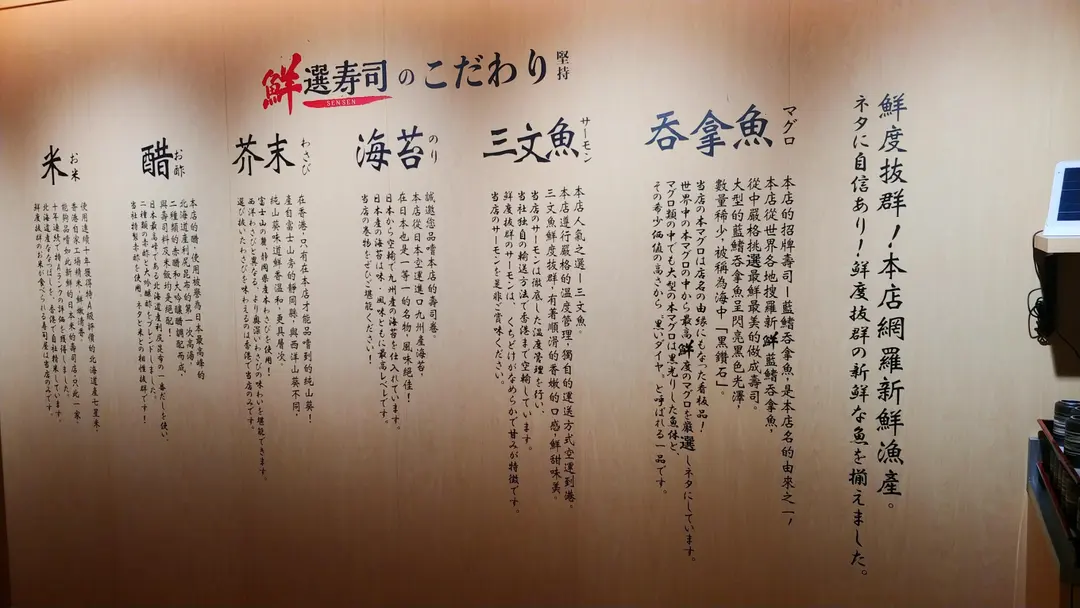 鮮選寿司のこだわり 堅持
SENSEN
鮮度抜群！本店網羅新鮮漁產。
ネタに自信あり！鮮度抜群の新鮮な魚を揃えました。
吞拿魚 マグロ
本店的招牌壽司—藍鰭吞拿魚，是本店名的由來之一！
本店從世界各地搜羅新鮮藍鰭吞拿魚，
從中嚴格挑選最鮮最美的做成壽司。
大型的藍鰭吞拿魚呈閃亮黑色光澤，
數量稀少，被稱為海中「黑鑽石」。
当店の本マグロは店名の由縁にもなった看板品！
世界中の本マグロの中から最高鮮度のマグロを厳選しネタにしています。
マグロ類の中でも大型の本マグロは黒光りした魚体と、
その希少価値の高さから「黒いダイヤ」と呼ばれる一品です。
三文魚 サーモン
本店人氣之選—三文魚。
本店進行嚴格的溫度管理，獨自的運送方式空運到港，
三文魚鮮度抜群，有著順滑的香嫩的口感，鮮甜味美。
当店のサーモンは徹底した温度管理を行い、
当社独自の輸送方法で香港まで空輸しています。
鮮度抜群のサーモンは、くちどけがなめらかで甘みが特徴です。
当店のサーモンを是非ご賞味ください。
海苔 のり
誠邀您品嚐本店的壽司卷。
本店從日本空運進口九州產海苔，
在日本也是一等一的名物，風味絕佳！
日本から空輸で九州産の海苔を仕入れています。
日本産の海苔は味・風味ともに最高レベルです。
当店の巻物をぜひご堪能ください！
芥末 わさび
在香港，只有在本店才能品嚐到的純山葵！
產自富士山旁的靜岡縣，與西洋山葵不同，
純山葵味道鮮香溫和，更具層次。
富士山の麓、静岡県産本わさびを使用！
西洋わさびと異なる、より奥深いわさびの味わいを堪能できます。
選び抜いたわさびを味わえるのは香港で当店のみです。
醋 お酢
本店的醋，使用被譽為日本最高峰的
北海道產利尻昆布的第一次高湯，
二種類的赤醋和大吟釀醋調配而成，
與壽司料及米飯均是絕配！
日本最高峰である北海道産利尻昆布の一番だしを使い、
二種類の赤酢と大吟醸酢をブレンドしました。
当社特製赤酢を使用。ネタと米との相性抜群です！
米 お米
使用連續十年獲得特A級評價的北海道產七星米，
香港自家工場精米，鮮嫩清香。
能夠品嚐如此新鮮的日本米的壽司店，只此一家，
十年連続で特Aランクの評価を獲得しました。
北海道産ななつぼしを、香港で自社精米しています。
鮮度抜群のお米が食べられる寿司屋は当店のみです。